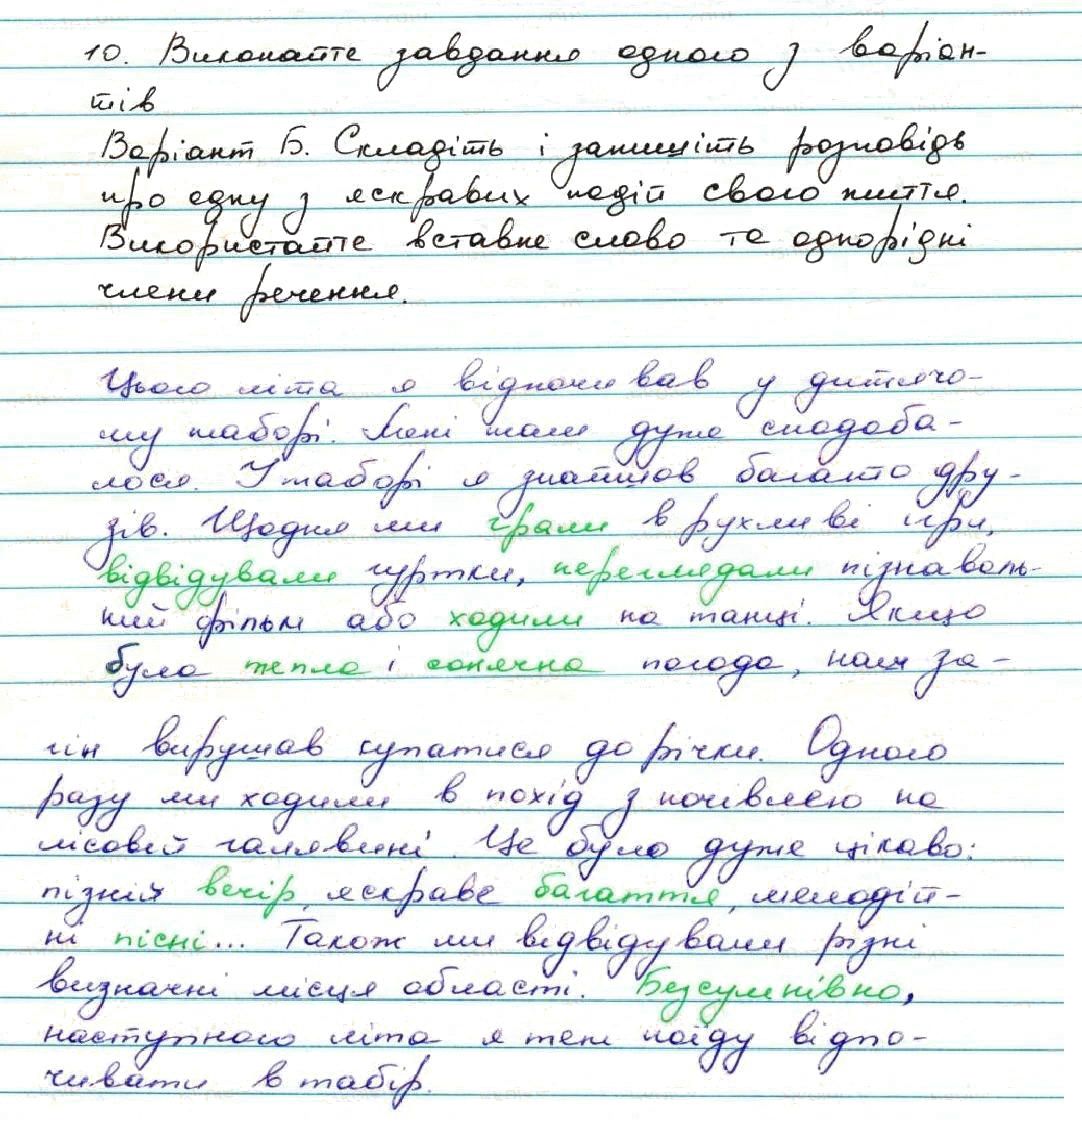 10. Виконайте завдання одного з варіан-
тів
Варіант Б. Складіть і запишіть розповідь
про одну з яскравих подій свого життя.
Використайте вставне слово та однорідні
члени речення.
Цього літа я відпочивав у дитячо-
му таборі. Мені там дуже сподоба-
лося. У таборі я знайшов багато дру-
зів. Щодня ми грали в рухливі ігри,
відвідували гуртки, переглядали пізнаваль-
ний фільм або ходили на танці. Якщо
була тепла і сонячна погода, наш за-
гін вирушав купатися до річки. Одного
разу ми ходили в похід з ночівлею на
лісовій галявині. Це було дуже цікаво:
пізній вечір, яскраве багаття, мелодій-
ні пісні... Також ми відвідували різні
визначні місця області. Безсумнівно,
наступного літа я теж поїду відпо-
чивати в табір.